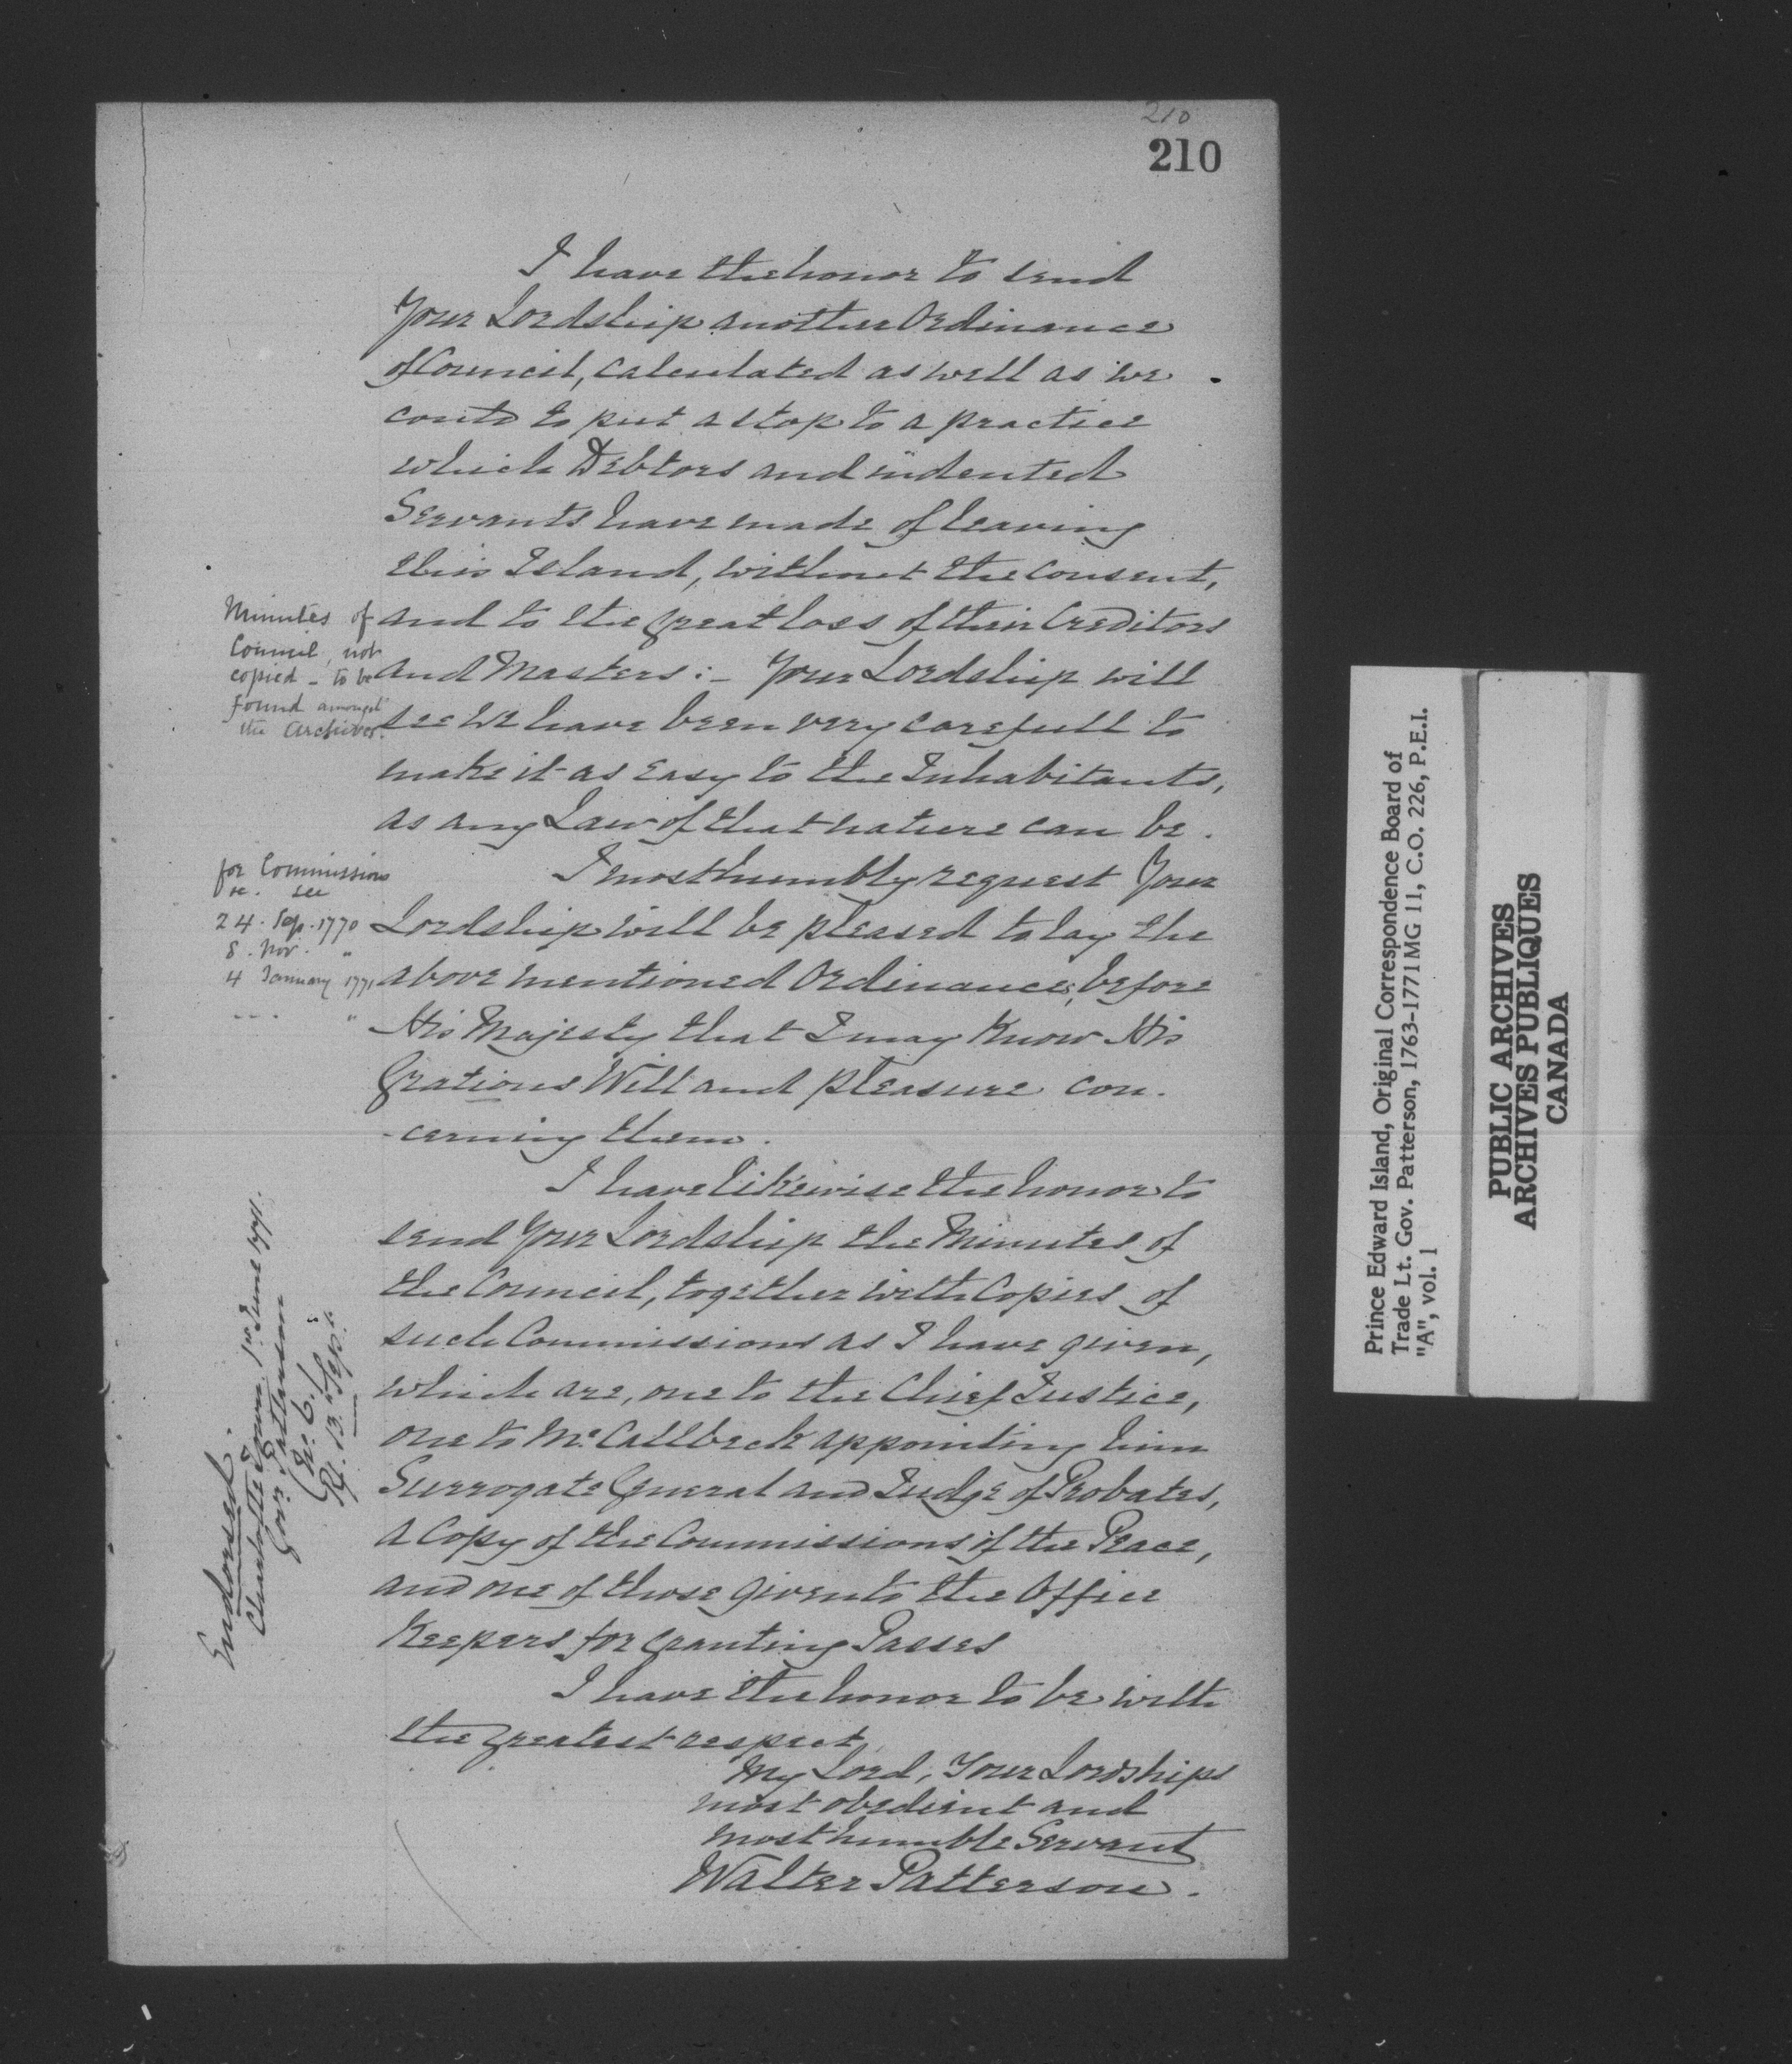 210
210
I have the honor to send
Your Lordship another Ordinance
of Council, calculated as well as we
could to put a stop to a practice
which Debtors and indented
Servants have made of leaving
this Island, without the consent,
and to the great loss of their Creditors
and Masters:- Your Lordship will
see we have been very carefull to
make it as easy to the Inhabitants,
as any Law of that nature can be.
I most humbly request Your
Lordship will be pleased to lay the
above mentioned Ordinances, before
His Majesty that I may Know His
Gratious Will and pleasure con-
-cerning them.
I have likewise the honor to
send Your Lordship the Minutes of
the Council, together with Copies of
such Commissions as I have given,
which are, one to the Chief Justice,
one to Mr. Callbeck appointing him
Surrogate General and Judge of Probates,
a Copy of the Commissions of the Peace,
and one of those given to the Office
Keepers for granting Passes
I have the honor to be with
the greatest respect,
My Lord, Your Lordships
most obedient and
most humble Servant
Walter Patterson.
Minutes of
Council, not
copied - to be
found amongst
the Archives.
for Commissions
&c. see
24. Sep. 1770
8. Nov. "
4 January 1771
--- "
Endorsed.
Charlotte Town, 1st June 1771.
Govr. Patterson
(No. 6.)
R/. 13th Sepr.
Prince Edward Island, Original Correspondence Board of
Trade Lt. Gov. Patterson, 1763-1771 MG 11, C.O. 226, P.E.I.
"A", vol. 1
PUBLIC ARCHIVES
ARCHIVES PUBLIQUES
CANADA